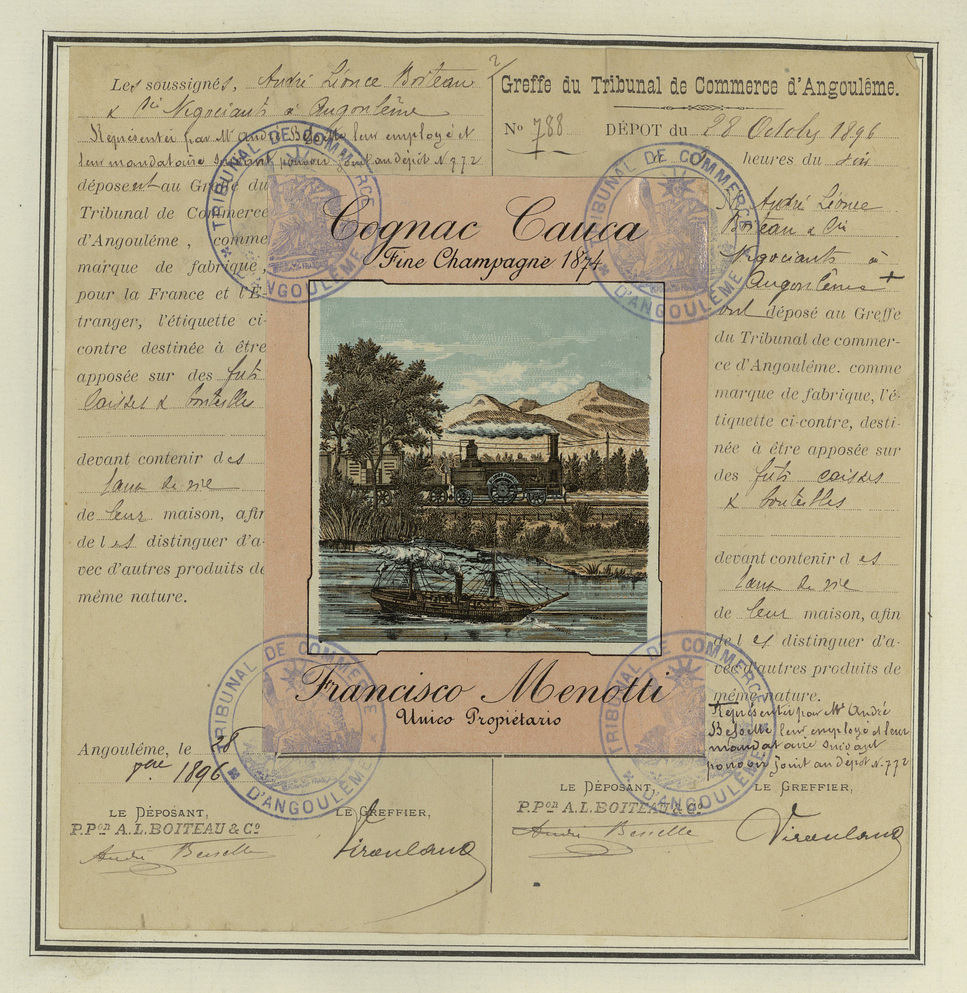 Les soussignés, André Léonce Boiteau
& Cie Négociants à Angoulême
Représentés par Mr André Besselle leur employé et
leur mandataire suivant pouvoir joint au dépôt N. 772
déposent au Greffe du
Tribunal de Commerce
d'Angoulême, comme
marque de fabrique,
pour la France et l'É-
tranger, l'étiquette ci-
contre destinée à être
apposée sur des futs
caisses & bouteilles
devant contenir des
eaux de vie
de leur maison, afin
de les distinguer d'a-
vec d'autres produits de
même nature.
Angoulême, le 28
8bre 1896
LE DÉPOSANT,
LE GREFFIER,
P.Pon A.L.BOITEAU & Co
André Besselle
Greffe du Tribunal de Commerce d'Angoulême.
No 788
DÉPOT du 28 Octobre 1896
heures du soir
André Léonce
Boiteau & Cie
Négociants à
Angoulême
ont déposé au Greffe
du Tribunal de commer-
ce d'Angoulême. comme
marque de fabrique, l'é-
tiquette ci-contre, desti-
née à être apposée sur
des futs caisses
& bouteilles
devant contenir des
eaux de vie
de leur maison, afin
de les distinguer d'a-
vec d'autres produits de
même nature.
Représentés par Mr André
Besselle leur employé et leur
mandataire suivant
pouvoir joint au dépôt N. 772
LE DÉPOSANT,
LE GREFFIER,
P.Pon A.L.BOITEAU & Co
André Besselle
Cognac Cauca
Fine Champagne 1874
Francisco Menotti
Unico Propiétario
TRIBUNAL DE COMMERCE D'ANGOULÊME
TRIBUNAL DE COMMERCE D'ANGOULÊME
TRIBUNAL DE COMMERCE D'ANGOULÊME
TRIBUNAL DE COMMERCE D'ANGOULÊME